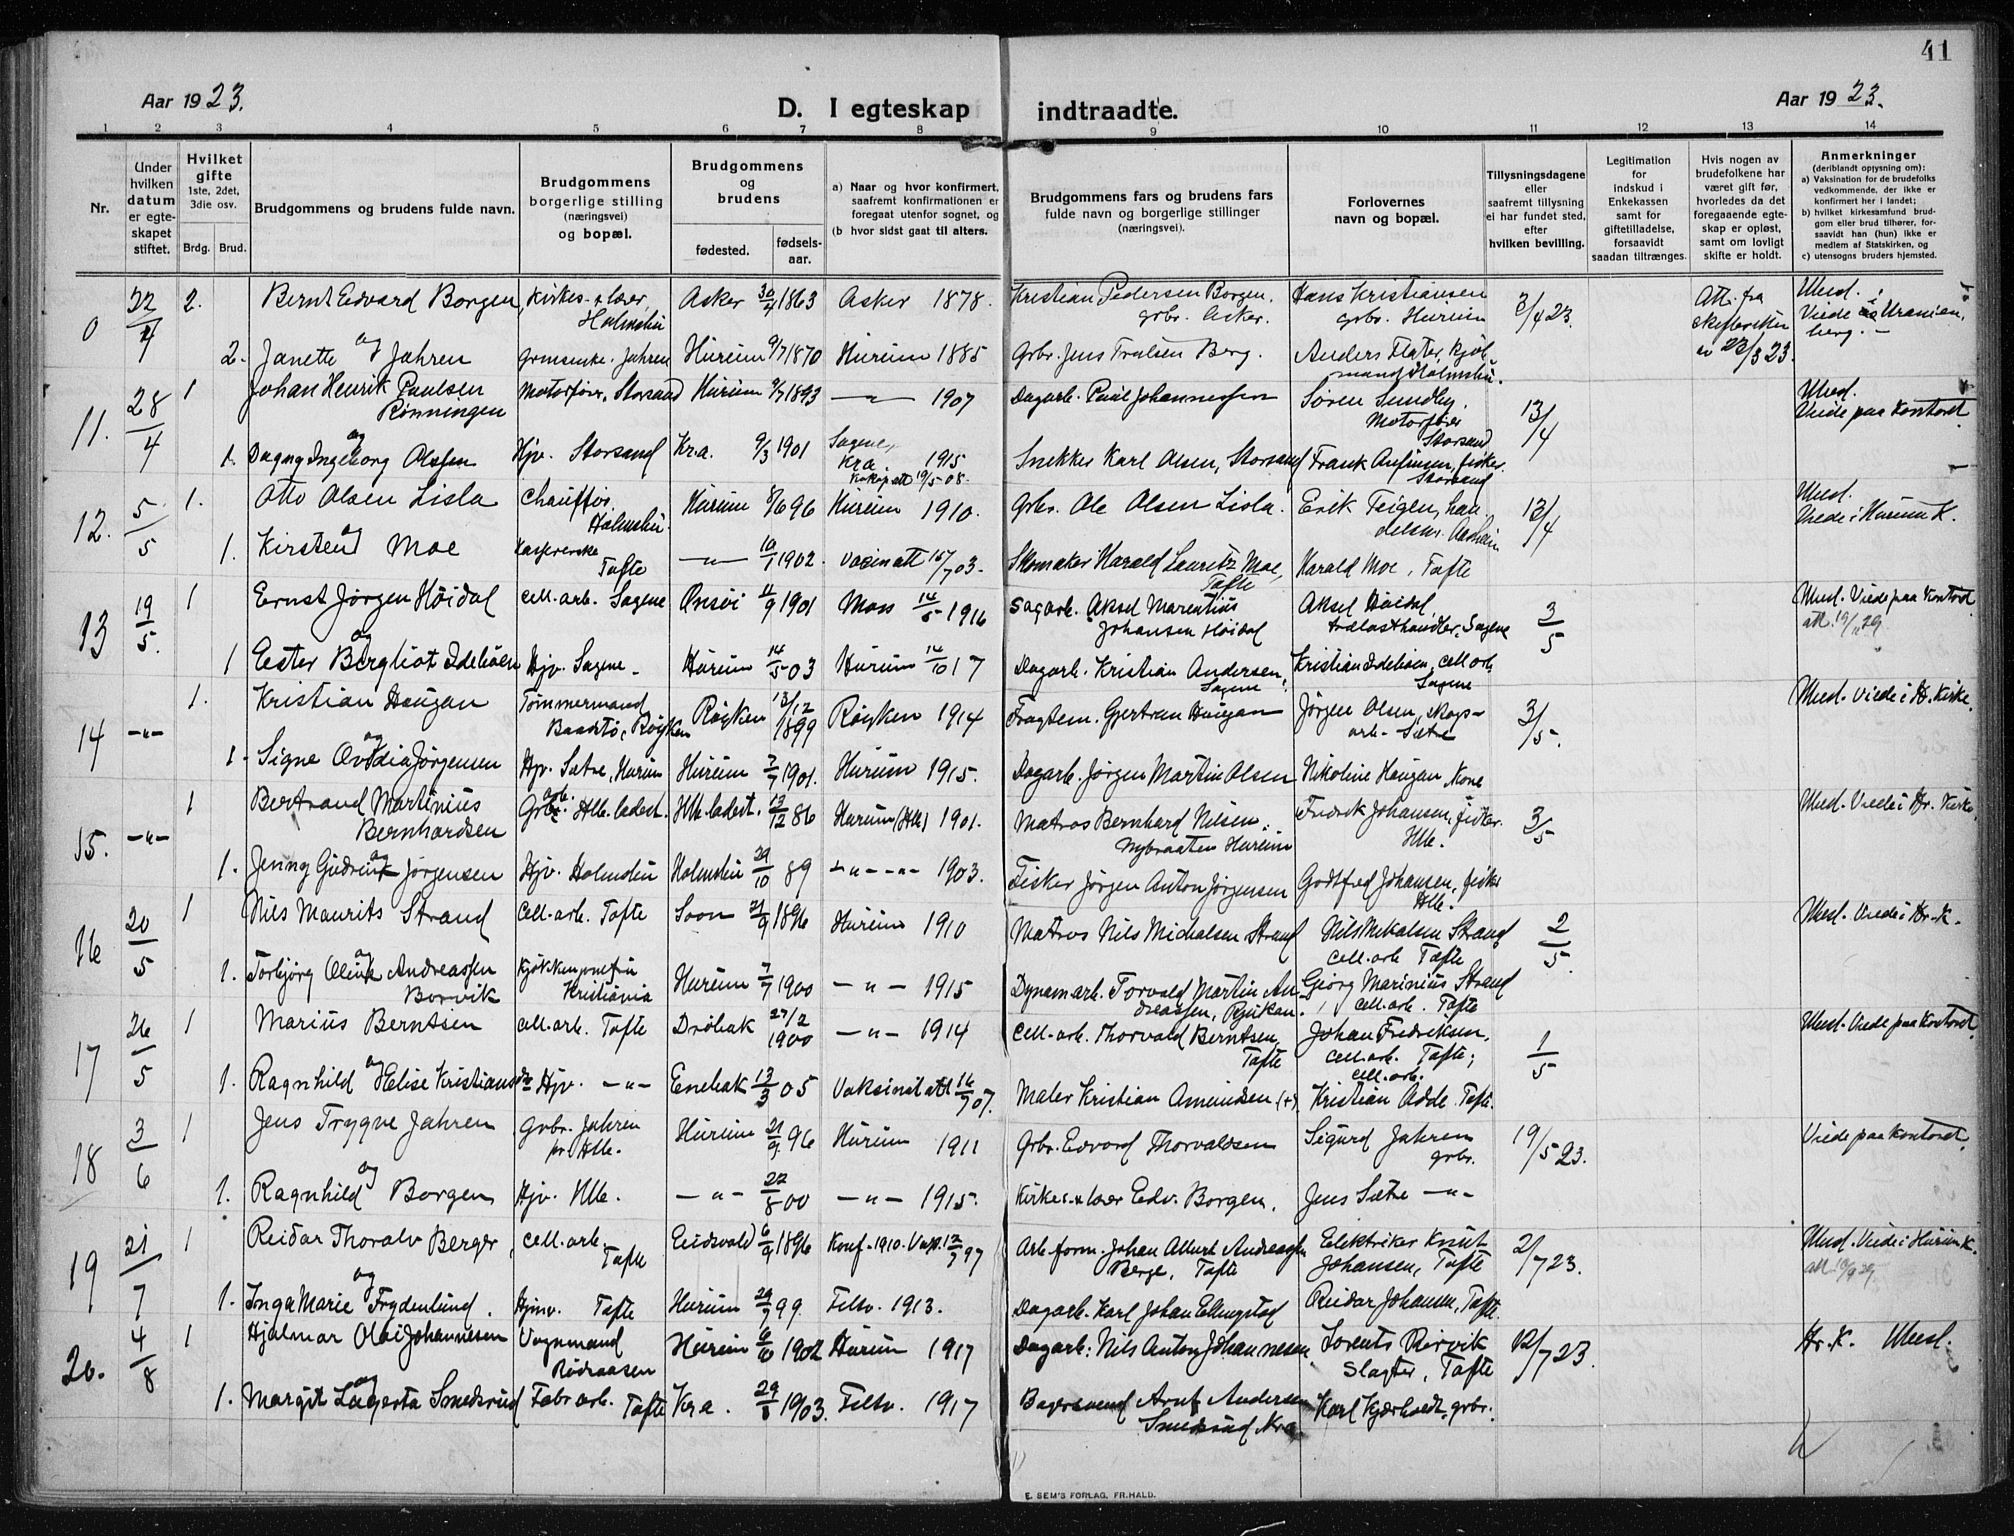 41
Aar 1923.
D. I egteskap indtraadte.
Aar 1923.
1 2 3 4 5 6 7 8 9 10 11 12 13 14
Nr.
Under hvilken datum er egteskapet stiftet.
Hvilket gifte 1ste, 2det, 3die osv.
Brdg. Brud.
Brudgommens og brudens fulde navn.
Brudgommens borgerlige stilling (næringsvei) og bopæl.
Brudgommens og brudens
fødested. fødsels-aar.
a) Naar og hvor konfirmert, saafremt konfirmationen er foregaat utenfor sognet, og
(b hvor sidst gaat til alters.
Brudgommens fars og brudens fars fulde navn og borgerlige stillinger (næringsvei).
Forlovernes navn og bopæl.
Tillysningsdagene eller saafremt tillysning ei har fundet sted, efter hvilken bevilling.
Legitimation for indskud i Enkekassen samt for giftetilladelse, forsaavidt saadan tiltrænges.
Hvis nogen av brudefolkene har været gift før, hvorledes da det foregaaende egteskap er opløst, samt om lovligt skifte er holdt.
Anmerkninger (deriblandt opjysning om):
a) Vaksination for de brudefolks vedkommende, der ikke er konfirmert her i landet;
b) hvilket kirkesamfund brudgom eller brud tilhører, forsaavidt han (hun) ikke er medlem af Statskirken, og
c) utensogns bruders hjemsted.
0 22/4 2. Bernt Edvard Borgen, Kirkes. + lærer, Holmsbu Asker 30/4 1863 Asker 1878. Kristian Pedersen Borgen, grbr. Asker. Hans Kristiansen grbr. Hurum 3/4 23. Att. fra skifteretten 23/3 23. Uud. Viede i Uranienberg. –
og
2. Janette Jahren Grmenke. Jahren Hurum 9/7 1870 Hurum 1885 Grbr. Jens Trulsen Berg. Anders Flater, Kjøbmand Holmsbu.
11. 28/4 1 Johan Henrik Paulsen Rønningen Motorfører, Storsand Hurum 9/7 1893 —"— 1907 Dagarb. Paul Johannessen Søren Sundby, Motorfører Storsand 13/4 Uusl. Viede paa Kontoret.
og
1. Dagny Ingeborg Olsen Hjv. Storsand Kr.a. 9/3 1901 Sagene, Kra. 1915 Snekker Karl Olsen, Storsand Frank Anfinsen, fisker. Storsand
12. 5/5 1. Otto Olsen Lisla Chauffør. Holmsbu. Hurum 8/6 96 Hurum 1910. Grbr. Ole Olsen Lisla. Erik Teigen, handelsm. 13/4 Uusl. Viede i Hurum K.
og
1. Kirsten Moe Kaspererske Tofte —"— 10/1 1902. Vacin att 15/7 03. Skomaker Harald Lauritz Moe, Tofte Harald Moe, Tofte
13 19/5. 1 Ernst Jørgen Høidal Cell.arb. Sagene Onsøi 11/9 1901 Moss 14/5 1916 Sagarb. Aksel Marentius Johansen Høidal Aksel Høidal, trælasthandler, Sagene 3/5 Uusl. Viede paa Kontoret. att. 19/11 29
og
1 Ester Bergliot Idelsøen Hjv. Sagene – Hurum 14/5 03 Hurum 14/10 17 Dagarb. Kristian Andersen, Sagene Kristian Idelsøen, cell.arb. Sagene
14 –"– 1. Kristian Haugan Tømmermand Baadstø, Røyken Røyken 13/12 1899 Røyken 1914 Fragtem. Gjertran Haugan Jørgen Olsen, skogsarb. Sætre 3/5. Uusl. Viede i H. Kirke.
og
1 – Signe Ovidia Jørgensen Hjv. Sætre, Hurum Hurum 7/7 1901. Hurum 1915. Dagarb. Jørgen Martin Olsen Nikoline Haugan, Kone
15. –"– 1 Bertrand Martinius Bernhardsen Grbr. arb. Hlle.ladest. Hlle.ladest. 13/12 86 Hurum (Hlle) 1901. Matros Bernhard Nilsen, Nybraaten Hurum Fredrik Johansen, fisker. Hlle. 3/5 Uusl. Viede i Hr. Kirke.
og
1. Jenny Gudrun Jørgensen Hjv. Holmsbu Holmsbu 29/10 89 –"– –"– 1903. Fisker Jørgen Anton Jørgensen Godtfred Johansen, fisker Hlle.
16 20/5 1 Nils Maurits Strand Cell.arb. Tofte Soon 21/9 1896 Hurum 1910 Matros Nils Michalsen Strand Nils Mikalsen Strand cell.arb. Tofte 2/5. Uusl. Viede i Hr. K.
og
1. Torbjørg Oline Andreassen Borvik Kjøkkenjomfru Kristiania Hurum 7/7 1900 –"– 1915 Dynamarb. Torvald Martin Andreassen, Rjukan. Georg Marinius Strand cell.arb. Tofte
17 26/5 1 Marius Berntsen cell.arb. Tofte Drøbak 27/2 1900 –"– 1914 Cell.arb. Thorvald Berntsen, Tofte Johan Fredriksen, cell.arb. Tofte; 1/5 Uusl. Viede paa Kontoret.
og
1. Ragnhild Elise Kristiansdtr Hjv. –"– Enebak 13/3 05 Vaksinatatt 16/7 07. Maler Kristian Amundsen (+) cell.arb. Kristian Adde Tofte.
18 3/6 1 Jens Trygve Jahren Grbr. Jahren pr. Hlle. Hurum 21/9. 96 Hurum 1911 Grbr. Edvard Thorvaldsen Sigurd Jahren grbr. 19/5 23. Viede paa Kontoret.
og
1. Ragnhild Borgen Hjv. Hlle. –"– 22/8 00 –"– 1915. Kirkes. + lærer Edv. Borgen, Jens Sætre –"–
19 21/7 1 Reidar Thoralv Berger, cell.arb. Tofte Eidsvold 6/9 1896 Konf. 1910. Vap. 12/7 97 Arb.form. Johan Albert Andreassen Berge, Tofte Elektriker Knut Johansen, Tofte 2/7 23. Uusl. Viede i Hurum K. att. 19/9 29
og
1. Inga Marie Frydenlund. Hjmv. Tofte Hurum 29/7 99. Filtv. 1913. Dagarb. Karl Johan Ellingstad Reidar Johansen, Tofte.
20. 4/8 1 Hjalmar Olai Johannesen Vognmand Rødraasen Hurum 6/10 1902 Hurum 1917 Dagarb: Nils Anton Johannesen, Lorents Rørvik Slagter, Tofte 12/7 23. Hr. K. Uusl.
og
1. Margit Lagerta Smedsrud Fabr.arb. Tofte Kra. 29/8 1903. Filtv. 1917 Bagersvend Arnt Andersen Smedsrud Kra Karl Kjærholdt, grbr.
E. SEM'S FORLAG, FR.HALD.